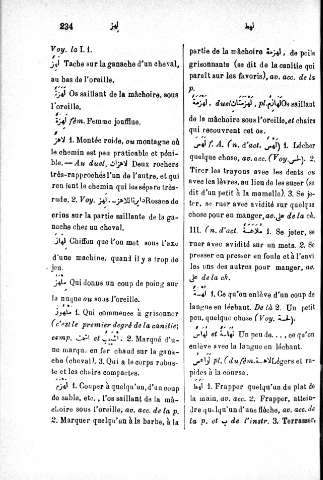 234
لهز
لهط
Voy. la I. 1.
Tache sur la ganache d'un cheval,
au bas de l'oreille.
Os saillant de la mâchoire, sous
l'oreille.
fém. Femme joufflue.
1. Montée roide, ou montagne où
le chemin est peu praticable et péni-
ble. — Au duel, Deux rochers
très-rapprochés l'un de l'autre, et qui
resserrent le chemin qui les sépare très-
rude. 2. Voy. Rosace de
crins sur la partie saillante de la ga-
nache chez un cheval.
Chiffon que l'on met sous l'axe
d'une machine, quand il y a trop de
jeu.
Qui donne un coup de poing sur
la nuque ou sous l'oreille.
1. Qui commence à grisonner
(c'est le premier degré de la canitie;
comp. et 2. Marqué d'u-
ne marque en fer chaud sur la gana-
che (cheval). 3. Qui a le corps robus-
te et les chairs compactes.
1. Couper à quelqu'un, d'un coup
de sabre, etc., l'os saillant de la mâ-
choire sous l'oreille, av. acc. de la p.
2. Marquer quelqu'un à la barbe, à la
partie de la mâchoire, de poils
grisonnants (se dit de la canitie qui
paraît sur les favoris), av. acc. de la
p.
pl. Os saillant
de la mâchoire sous l'oreille, et chairs
qui recouvrent cet os.
f. A. (n. d'act. 1. Lécher
quelque chose, av. acc. (Voy. 2.
Tirer les trayons avec les dents ou
avec les lèvres, au lieu de les sucer (se
dit d'un petit à la mamelle). 3. Se je-
ter, se ruer avec avidité sur quelque
chose pour en manger, av. على de la ch.
III. (n. d'act. 1. Se jeter, se
ruer avec avidité sur un mets. 2. Se
presser en presser en foule et à l'envi
les uns des autres pour manger, av.
على de la ch.
1. Ce qu'on enlève d'un coup de
langue en léchant. De là 2. Un petit
peu, quelque chose (Voy.
Un peu de..., ce qu'on
enlève avec la langue en léchant.
pl. (du fém. Légers et ra-
pides à la course.
1. Frapper quelqu'un du plat de
la main, av. acc. 2. Frapper, attein-
dre quelqu'un d'une flèche, av. acc. de
la p. et ب de l'instr. 3. Terrasser,